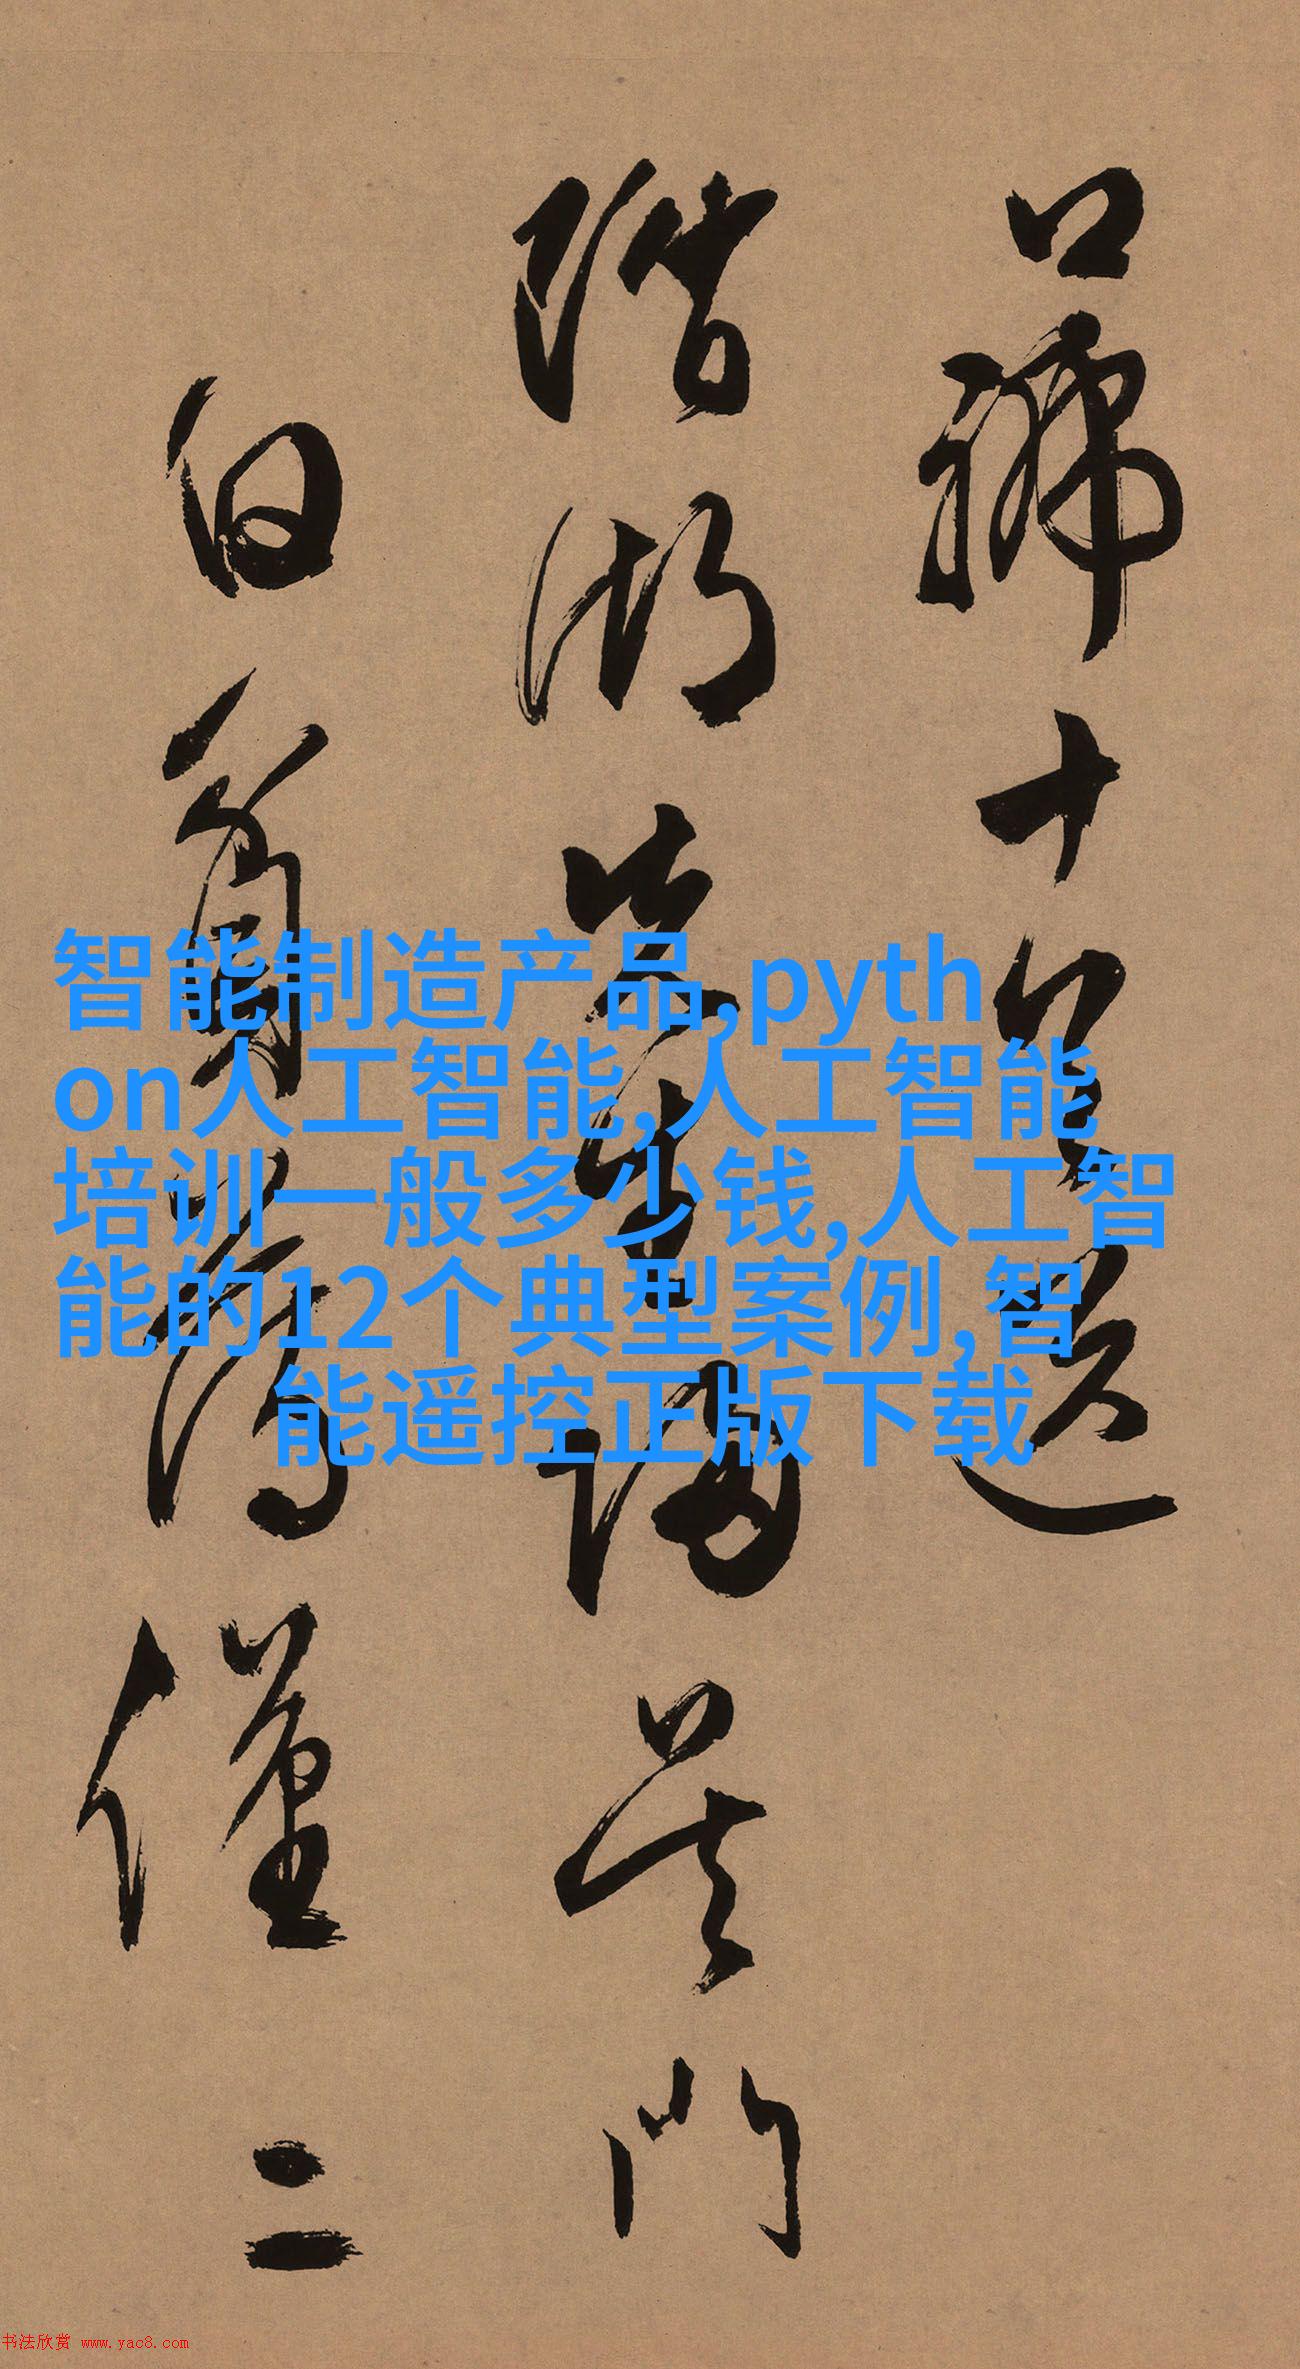 智能制造产品,pyth
on人工智能,人工智能
培训一般多少钱,人工智
能的12个典型案例,智
能遥控正版下载
口 十 送
階湖先生歸吳門
白 薄僅二
书法欣赏 www.yac8.com